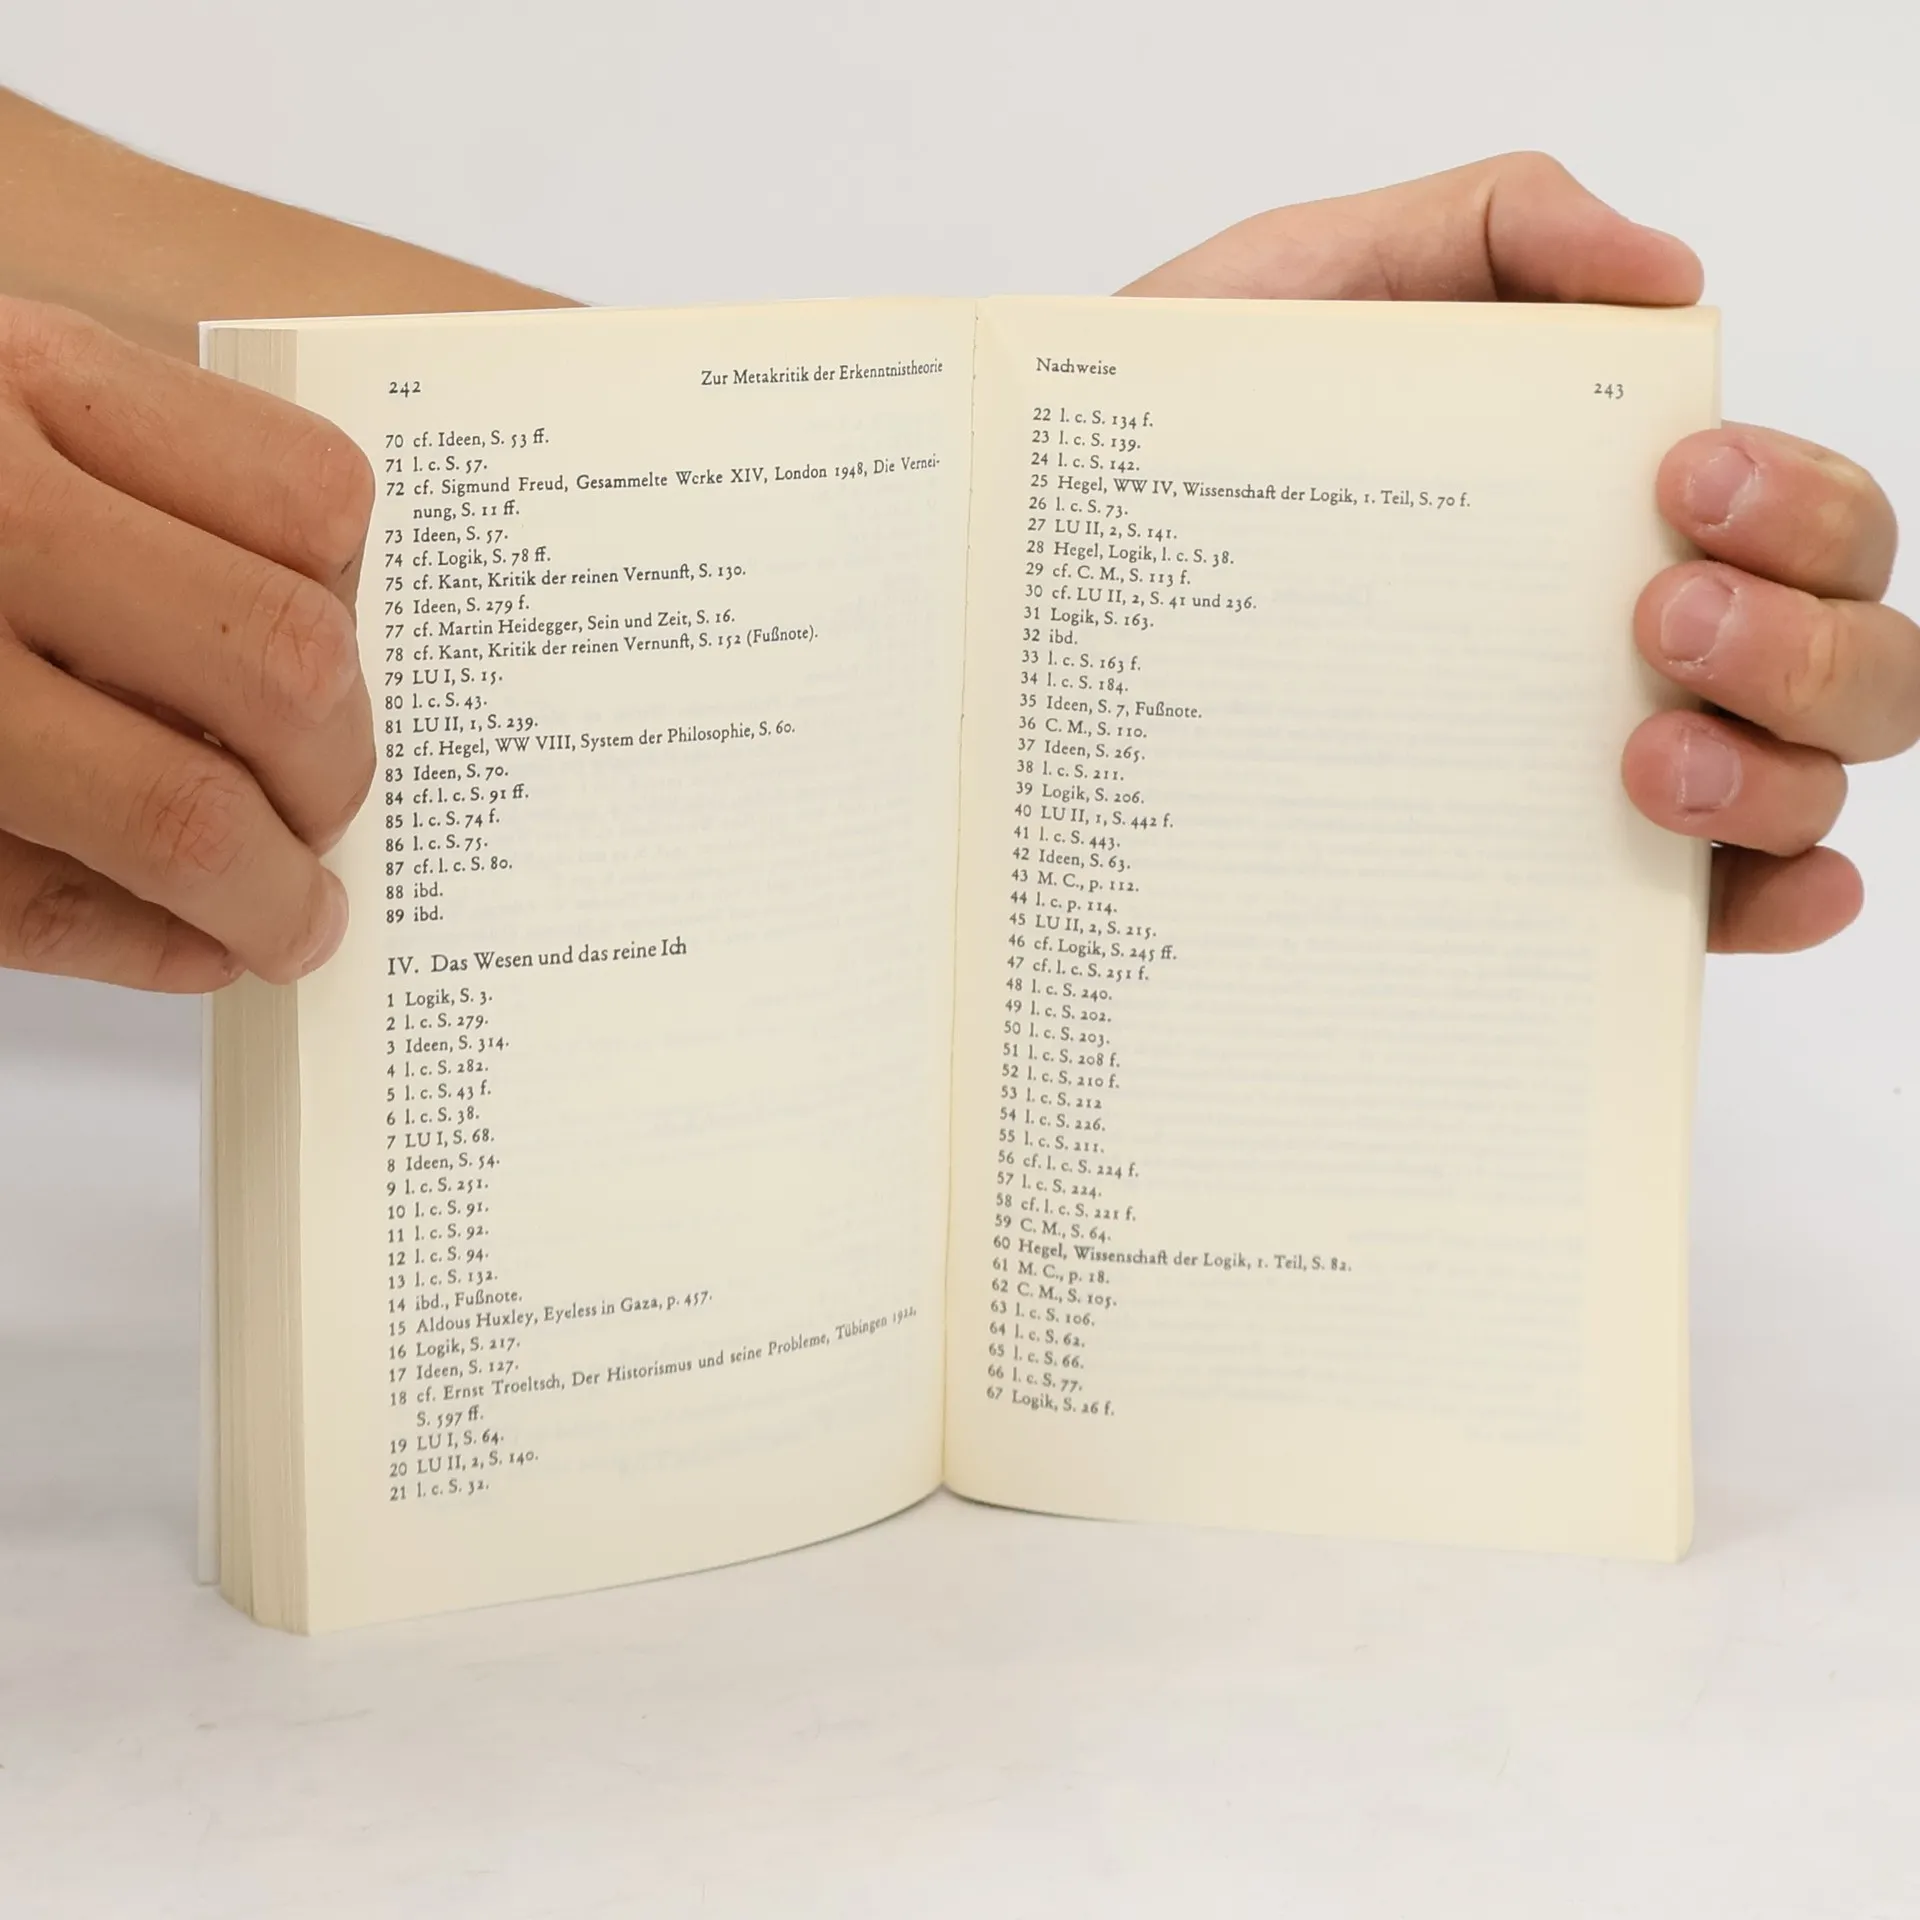 242
Zur Metakritik der Erkenntnistheorie
70 cf. Ideen, S. 53 ff.
71 l. c. S. 57.
72 cf. Sigmund Freud, Gesammelte Werke XIV, London 1948, Die Vernei-
nung, S. 11 ff.
73 Ideen, S. 57.
74 cf. Logik, S. 78 ff.
75 cf. Kant, Kritik der reinen Vernunft, S. 130.
76 Ideen, S. 279 f.
77 cf. Martin Heidegger, Sein und Zeit, S. 16.
78 cf. Kant, Kritik der reinen Vernunft, S. 152 (Fußnote).
79 LU I, S. 15.
80 l. c. S. 43.
81 LU II, 1, S. 239.
82 cf. Hegel, WW VIII, System der Philosophie, S. 60.
83 Ideen, S. 70.
84 cf. l. c. S. 91 ff.
85 l. c. S. 74 f.
86 l. c. S. 75.
87 cf. l. c. S. 80.
88 ibd.
89 ibd.
IV. Das Wesen und das reine Ich
1 Logik, S. 3.
2 l. c. S. 279.
3 Ideen, S. 314.
4 l. c. S. 282.
5 l. c. S. 43 f.
6 l. c. S. 38.
7 LU I, S. 68.
8 Ideen, S. 54.
9 l. c. S. 251.
10 l. c. S. 91.
11 l. c. S. 92.
12 l. c. S. 94.
13 l. c. S. 132.
14 ibd., Fußnote.
15 Aldous Huxley, Eyeless in Gaza, p. 457.
16 Logik, S. 217.
17 Ideen, S. 127.
18 cf. Ernst Troeltsch, Der Historismus und seine Probleme, Tübingen 1922,
S. 597 ff.
19 LU I, S. 64.
20 LU II, 2, S. 140.
21 l. c. S. 32.
Nachweise
243
22 l. c. S. 134 f.
23 l. c. S. 139.
24 l. c. S. 142.
25 Hegel, WW IV, Wissenschaft der Logik, 1. Teil, S. 70 f.
26 l. c. S. 73.
27 LU II, 2, S. 141.
28 Hegel, Logik, l. c. S. 38.
29 cf. C. M., S. 113 f.
30 cf. LU II, 2, S. 41 und 236.
31 Logik, S. 163.
32 ibd.
33 l. c. S. 163 f.
34 l. c. S. 184.
35 Ideen, S. 7, Fußnote.
36 C. M., S. 110.
37 Ideen, S. 265.
38 l. c. S. 211.
39 Logik, S. 206.
40 LU II, 1, S. 442 f.
41 l. c. S. 443.
42 Ideen, S. 63.
43 M. C., p. 112.
44 l. c. p. 114.
45 LU II, 2, S. 215.
46 cf. Logik, S. 245 ff.
47 cf. l. c. S. 251 f.
48 l. c. S. 240.
49 l. c. S. 202.
50 l. c. S. 203.
51 l. c. S. 208 f.
52 l. c. S. 210 f.
53 l. c. S. 212
54 l. c. S. 226.
55 l. c. S. 211.
56 cf. l. c. S. 224 f.
57 l. c. S. 224.
58 cf. l. c. S. 221 f.
59 C. M., S. 64.
60 Hegel, Wissenschaft der Logik, 1. Teil, S. 82.
61 M. C., p. 18.
62 C. M., S. 105.
63 l. c. S. 106.
64 l. c. S. 62.
65 l. c. S. 66.
66 l. c. S. 77.
67 Logik, S. 26 f.